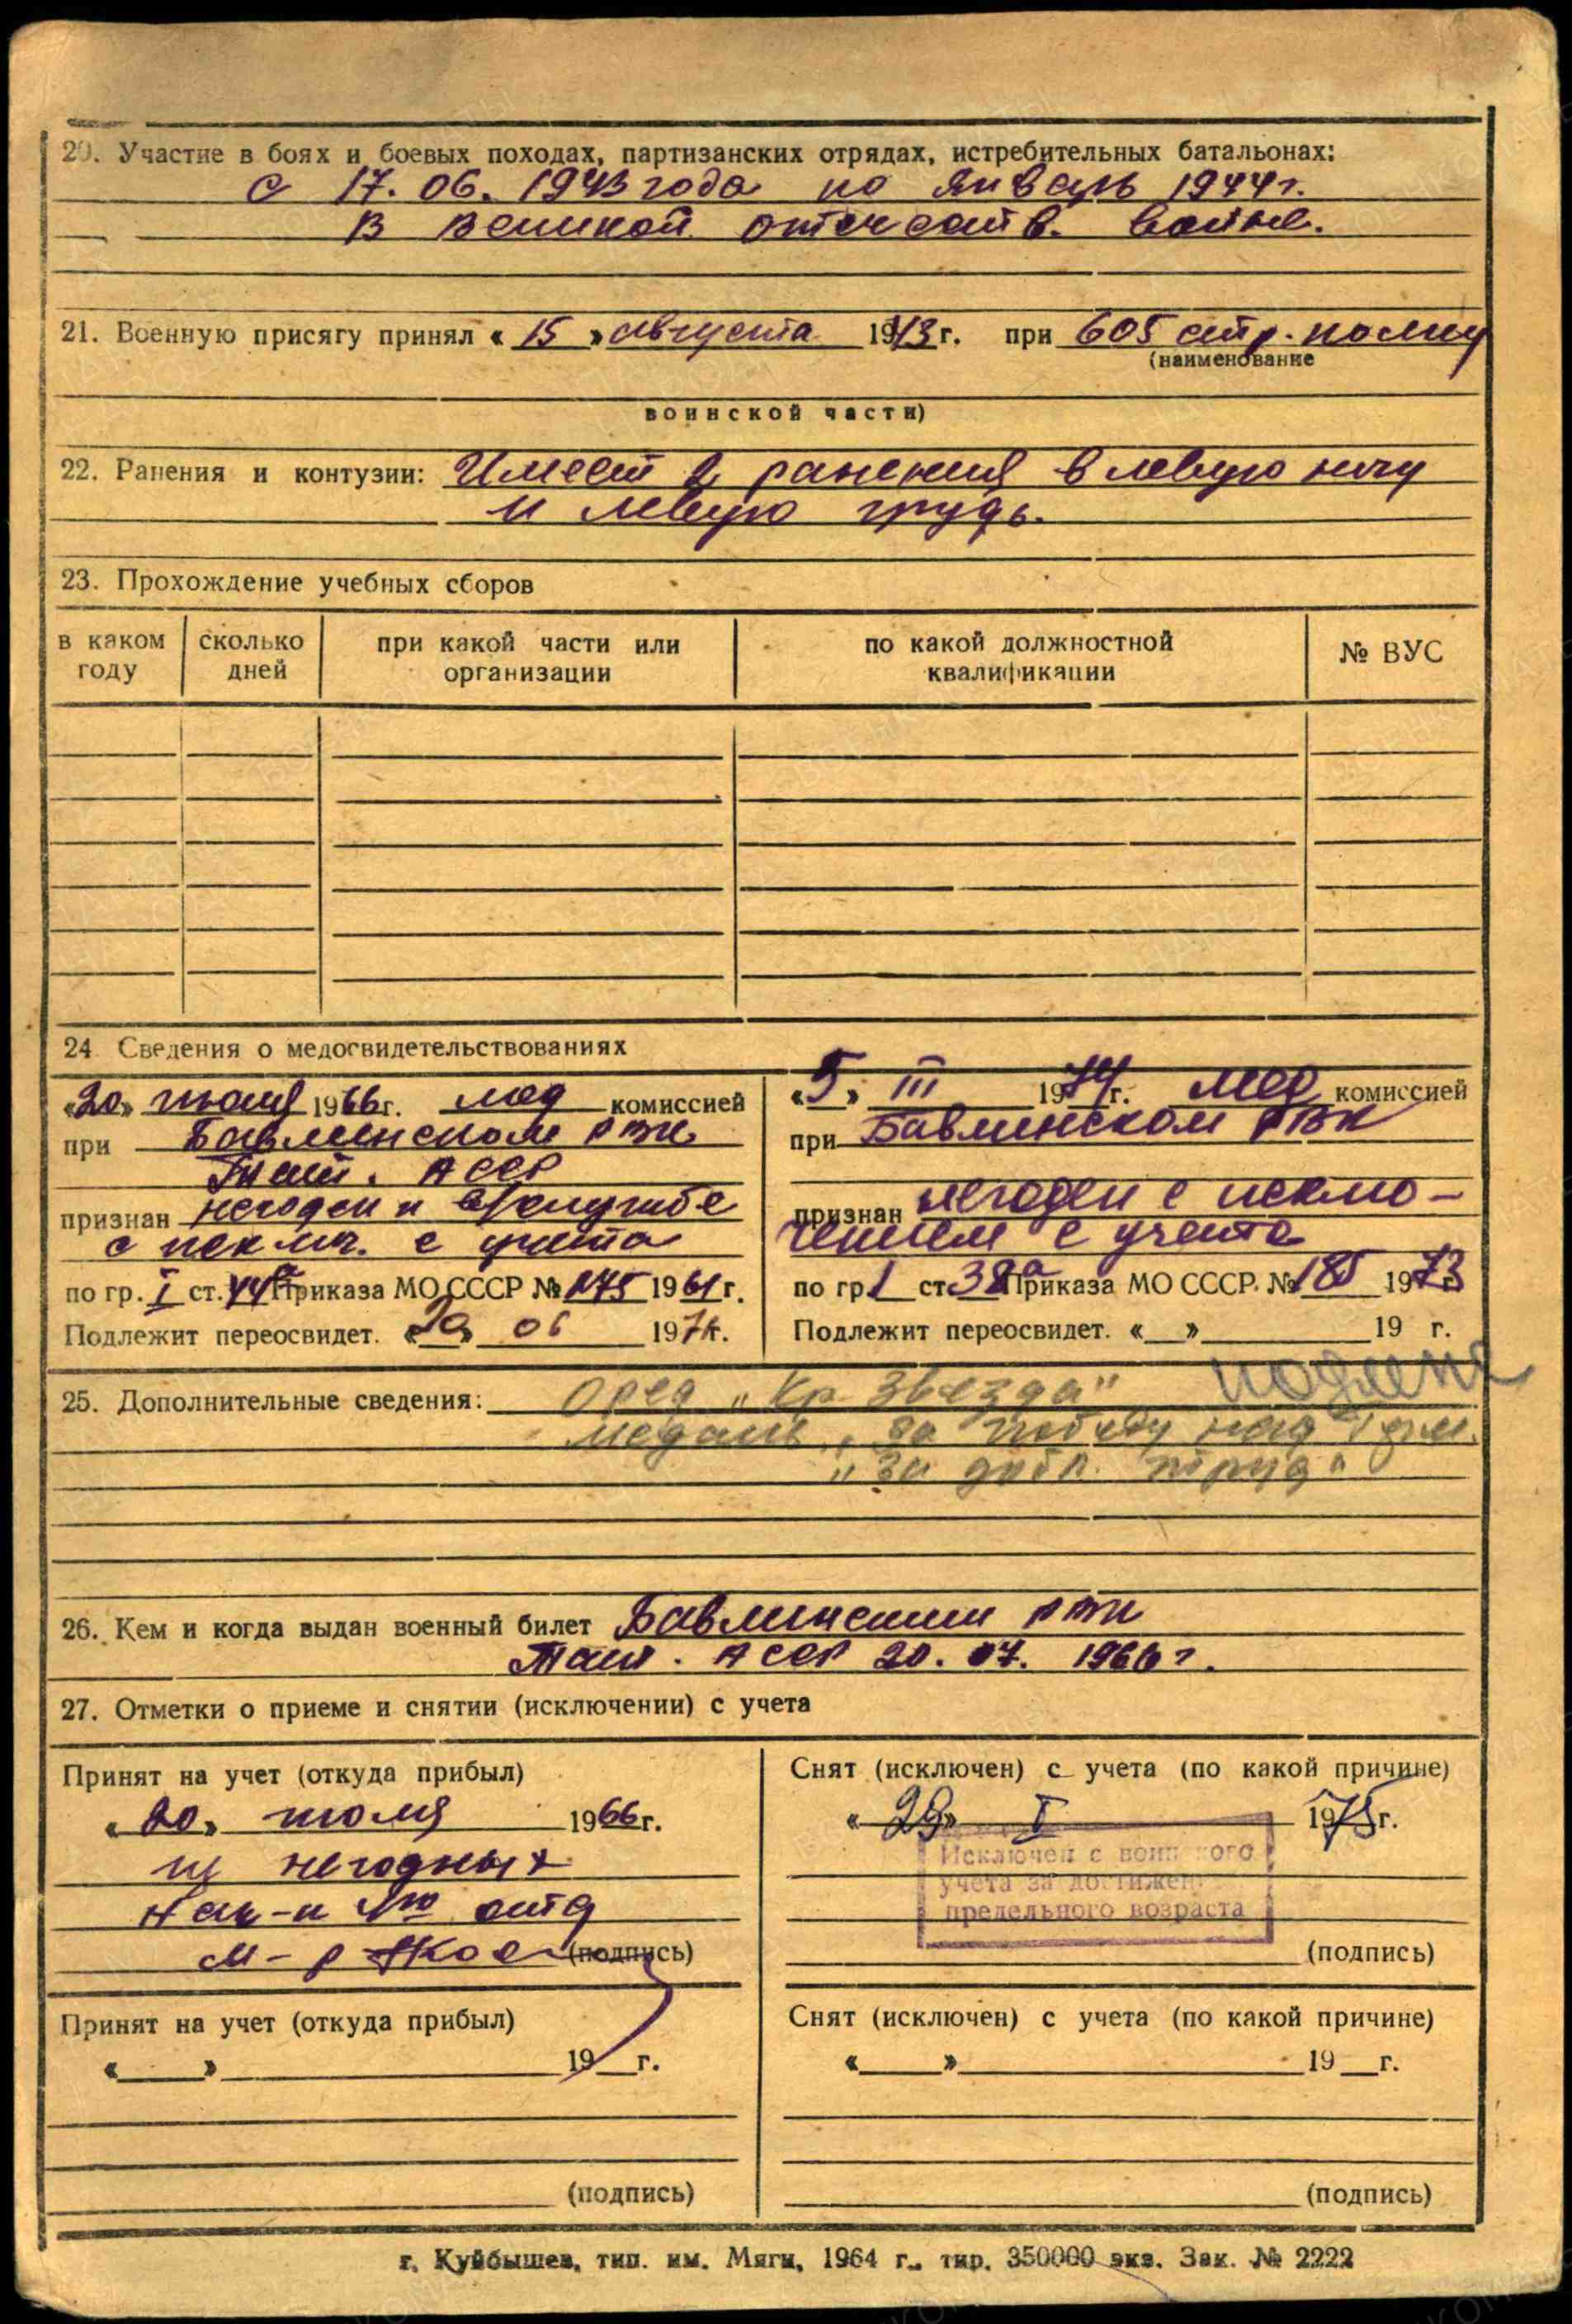 20. Участие в боях и боевых походах, партизанских отрядах, истребительных батальонах:
с 17. 06. 1943 года по январь 1944 г.
в великой отечеств. войне.
21. Военную присягу принял « 15 » августа 1943 г. при 605 стр. полку
(наименование
воинской части)
22. Ранения и контузии: Имеет 2 ранения в левую ногу
и левую грудь.
23. Прохождение учебных сборов
в каком году
сколько дней
при какой части или организации
по какой должностной квалификации
№ ВУС
24. Сведения о медосвидетельствованиях
«20» июля 1966 г. мед комиссией
при Бавлинском РВК
Тат. АССР
признан негоден к в/службе
с исключ. с учета
по гр. I ст. 44а Приказа МО СССР № 175 1961 г.
Подлежит переосвидет. « » 06 1971 г.
«5» III 1974 г. мед комиссией
при Бавлинском РВК
признан негоден с исклю-
чением с учета
по гр 1 ст 38а Приказа МО СССР. № 185 1973 г.
Подлежит переосвидет. « » 19 г.
25. Дополнительные сведения: Орд „Кр Звезда"
медаль „За победу над Герм.
„За добл. труд"
26. Кем и когда выдан военный билет Бавлинским РВК
Тат. АССР 20. 07. 1966 г.
27. Отметки о приеме и снятии (исключении) с учета
Принят на учет (откуда прибыл)
«20» июля 1966 г.
из негодных
Нач-к отд
м-р (подпись)
Снят (исключен) с учета (по какой причине)
«29» I 1975 г.
Исключен с воинского
учета за достижен
предельного возраста
(подпись)
Принят на учет (откуда прибыл)
« » 19 г.
(подпись)
Снят (исключен) с учета (по какой причине)
« » 19 г.
(подпись)
г. Куйбышев, тип. им. Мяги, 1964 г., тир. 350000 экз. Зак. № 2222